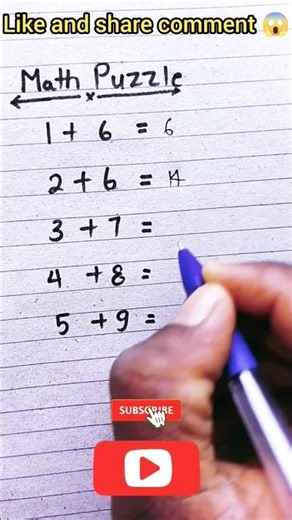 Like and share comment 😱
Math Puzzle
1 + 6 = 6
2 + 6 = 14
3 + 7 =
4 + 8 =
5 + 9 =
SUBSCRIBE